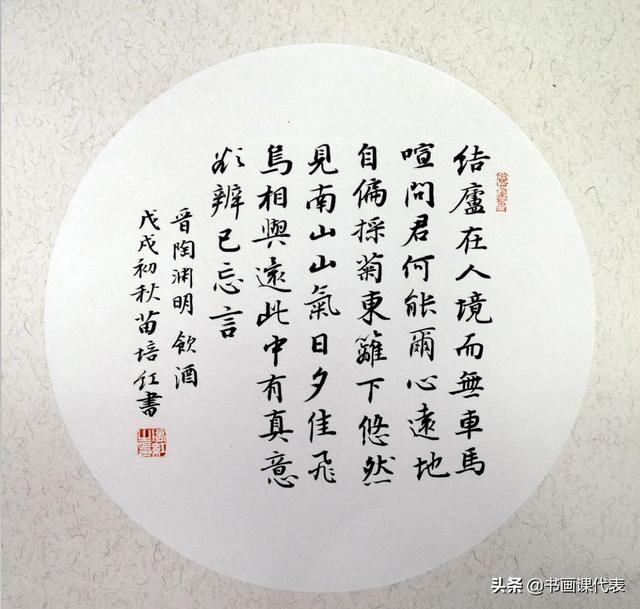 结廬在人境而無車馬
喧問君何能爾心遠地
自偏採菊東籬下悠然
見南山山氣日夕佳飛
鸟相與遠此中有真意
欲辨已忘言
晋陶渊明 飲酒
戊戌初秋苗培红書
头条 @书画课代表